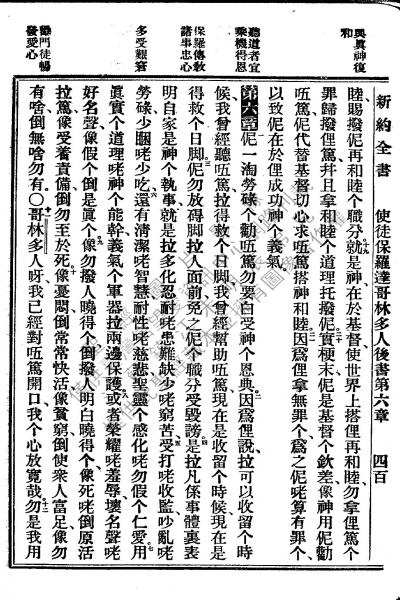 新約全書　使徒保羅達哥林多人後書第六章　四百
與眞神復和
聽道者宜乘機得恩
保羅傳教諸事忠心
多受艱窘
門徒暢發愛心
睦、賜撥伲再和睦个職分、就是神在於基督、使世界上搭俚再和睦、勿拿俚篤个
罪歸撥俚篤、并且拿和睦个道理托撥伲、實梗末伲是基督个欽差、像神用伲勸
㑚篤、伲代替基督切心求㑚篤搭神和睦、因爲俚拿無罪个、爲之伲咾算有罪个、
以致伲在於俚成功神个義氣、
第六章 伲一淘勞碌个、勸㑚篤勿要白白受神个恩典、因爲俚說、拉可以收留个時
候、我曾經聽㑚篤、拉得救个日脚、我曾經幫助㑚篤、現在是收留个時候、現在是
得救个日脚、伲勿放碍脚拉人面前、免之伲个職分受毀謗、是拉凡係事體裏表
明自家是神个執事、就是拉多化忍耐咾患難、缺少咾窮苦、受打咾收監、吵亂咾
勞碌、少睏咾少吃、還有清潔咾智慧、耐性咾慈悲、聖靈个感化咾勿假个仁愛、用
眞實个道理咾神个能幹、義氣个軍器拉兩邊保護、或者榮耀咾羞辱、壞名聲咾
好名聲、像假个倒是眞个、像勿撥人曉得个、倒撥人明白曉得个、像死咾倒原活
拉篤、像受着責備、倒勿至於死、像憂悶、倒常常快活、像貧窮、倒使衆人富足、像勿
有啥、倒無啥勿有、〇哥林多人呀、我已經對㑚篤開口、我个心放寬哉、勿是我用